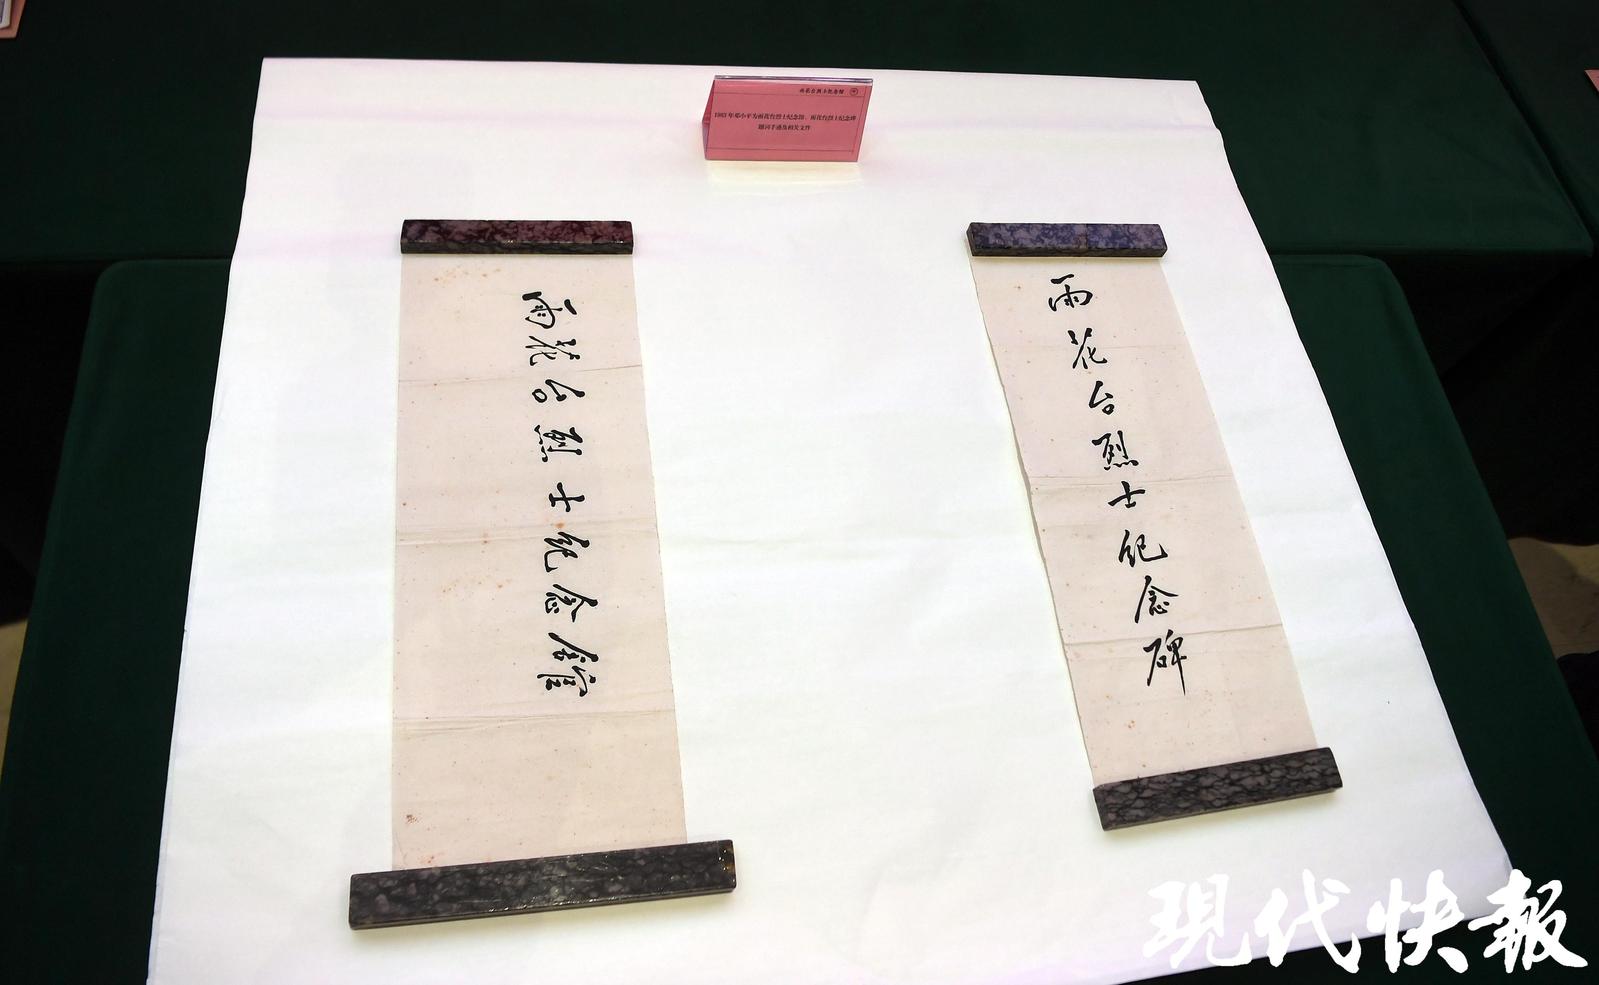 雨花台烈士纪念馆
1983年邓小平为雨花台烈士纪念馆、雨花台烈士纪念碑
题词手迹及相关文件
雨花台烈士纪念馆
雨花台烈士纪念碑
现代快报